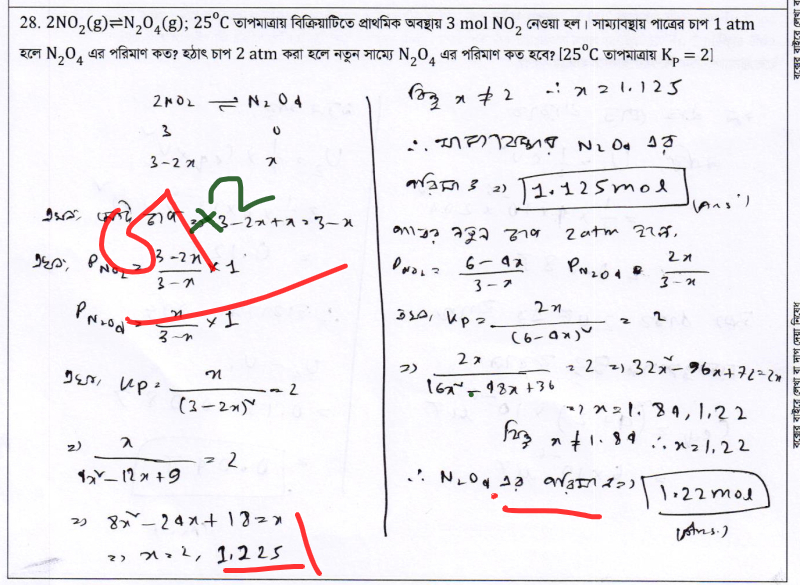 28. 2NO₂(g)⇌N₂O₄(g); 25°C তাপমাত্রায় বিক্রিয়াটিতে প্রাথমিক অবস্থায় 3 mol NO₂ নেওয়া হল। সাম্যাবস্থায় পাত্রের চাপ 1 atm
হলে N₂O₄ এর পরিমাণ কত? হঠাৎ চাপ 2 atm করা হলে নতুন সাম্যে N₂O₄ এর পরিমাণ কত হবে? [25°C তাপমাত্রায় K_P = 2]
2NO₂ ⇌ N₂O₄
3 0
3-2x x
এখন, মোট চাপ = 3-2x+x = 3-x
এখন, P_NO₂ = (3-2x)/(3-x) × 1
P_N₂O₄ = x/(3-x) × 1
এখন, Kp = x/(3-2x)² = 2
⇒ x/(4x²-12x+9) = 2
⇒ 8x²-24x+18 = x
⇒ x = 2, 1.225
কিন্তু x ≠ 2 ∴ x = 1.125
∴ সাম্যাবস্থায় N₂O₄ এর
পরিমাণ ⇒ 1.125 mol (Ans:)
পাত্রের নতুন চাপ 2atm হলে,
P_NO₂ = (6-4x)/(3-x) P_N₂O₄ = 2x/(3-x)
এখন, Kp = 2x/(6-4x)² = 2
⇒ 2x/(16x²-48x+36) = 2 ⇒ 32x²-96x+72 = 2x
⇒ x = 1.84, 1.22
কিন্তু x ≠ 1.84 ∴ x = 1.22
∴ N₂O₄ এর পরিমাণ ⇒ 1.22 mol
(Ans.)
2